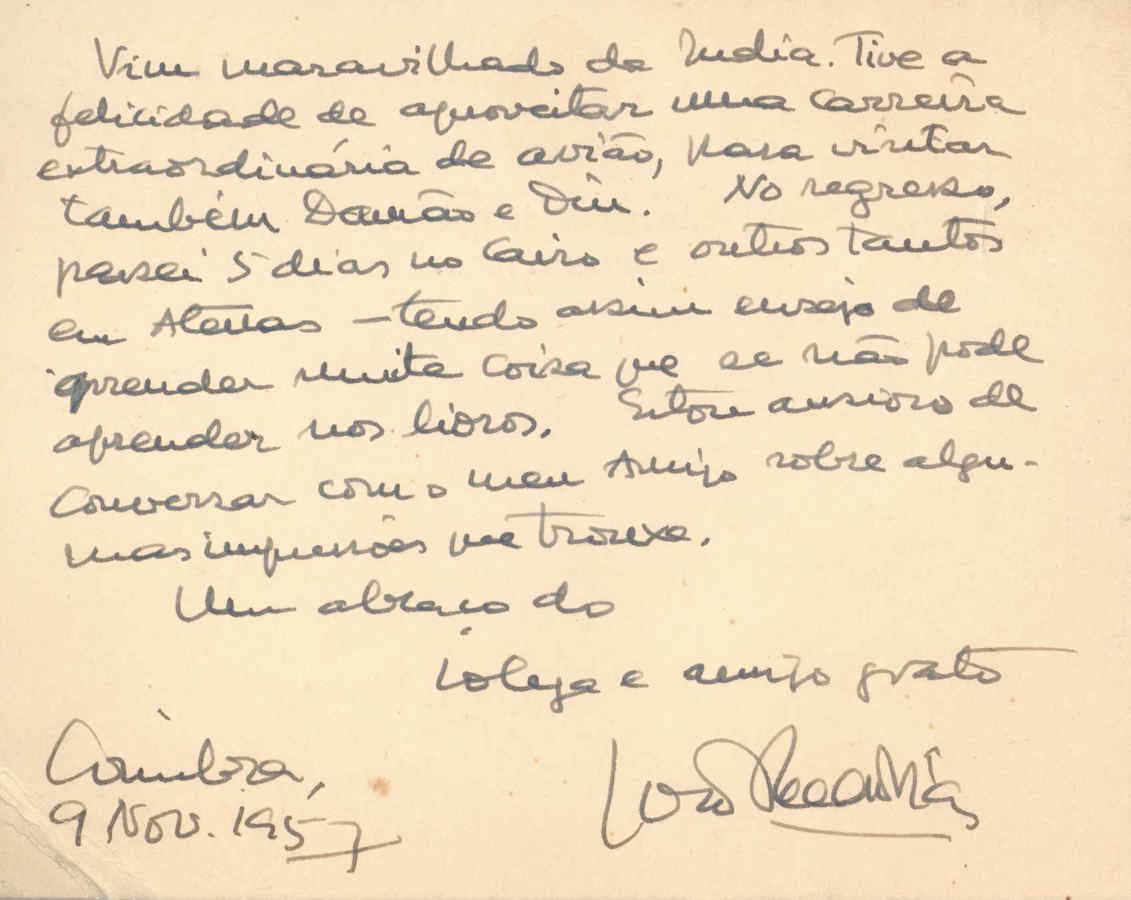 Vim maravilhado da India. Tive a
felicidade de aproveitar uma carreira
extraordinária de avião, para visitar
também Damão e Diu. No regresso,
passei 5 dias no Cairo e outros tantos
em Atenas – tendo assim ensejo de
aprender muita coisa que se não pode
aprender nos livros. Estou ansioso de
conversar com o meu Amigo sobre algu-
mas impressões que trouxe.
Um abraço do
Colega e amigo grato
Coimbra,
9 Nov. 1957